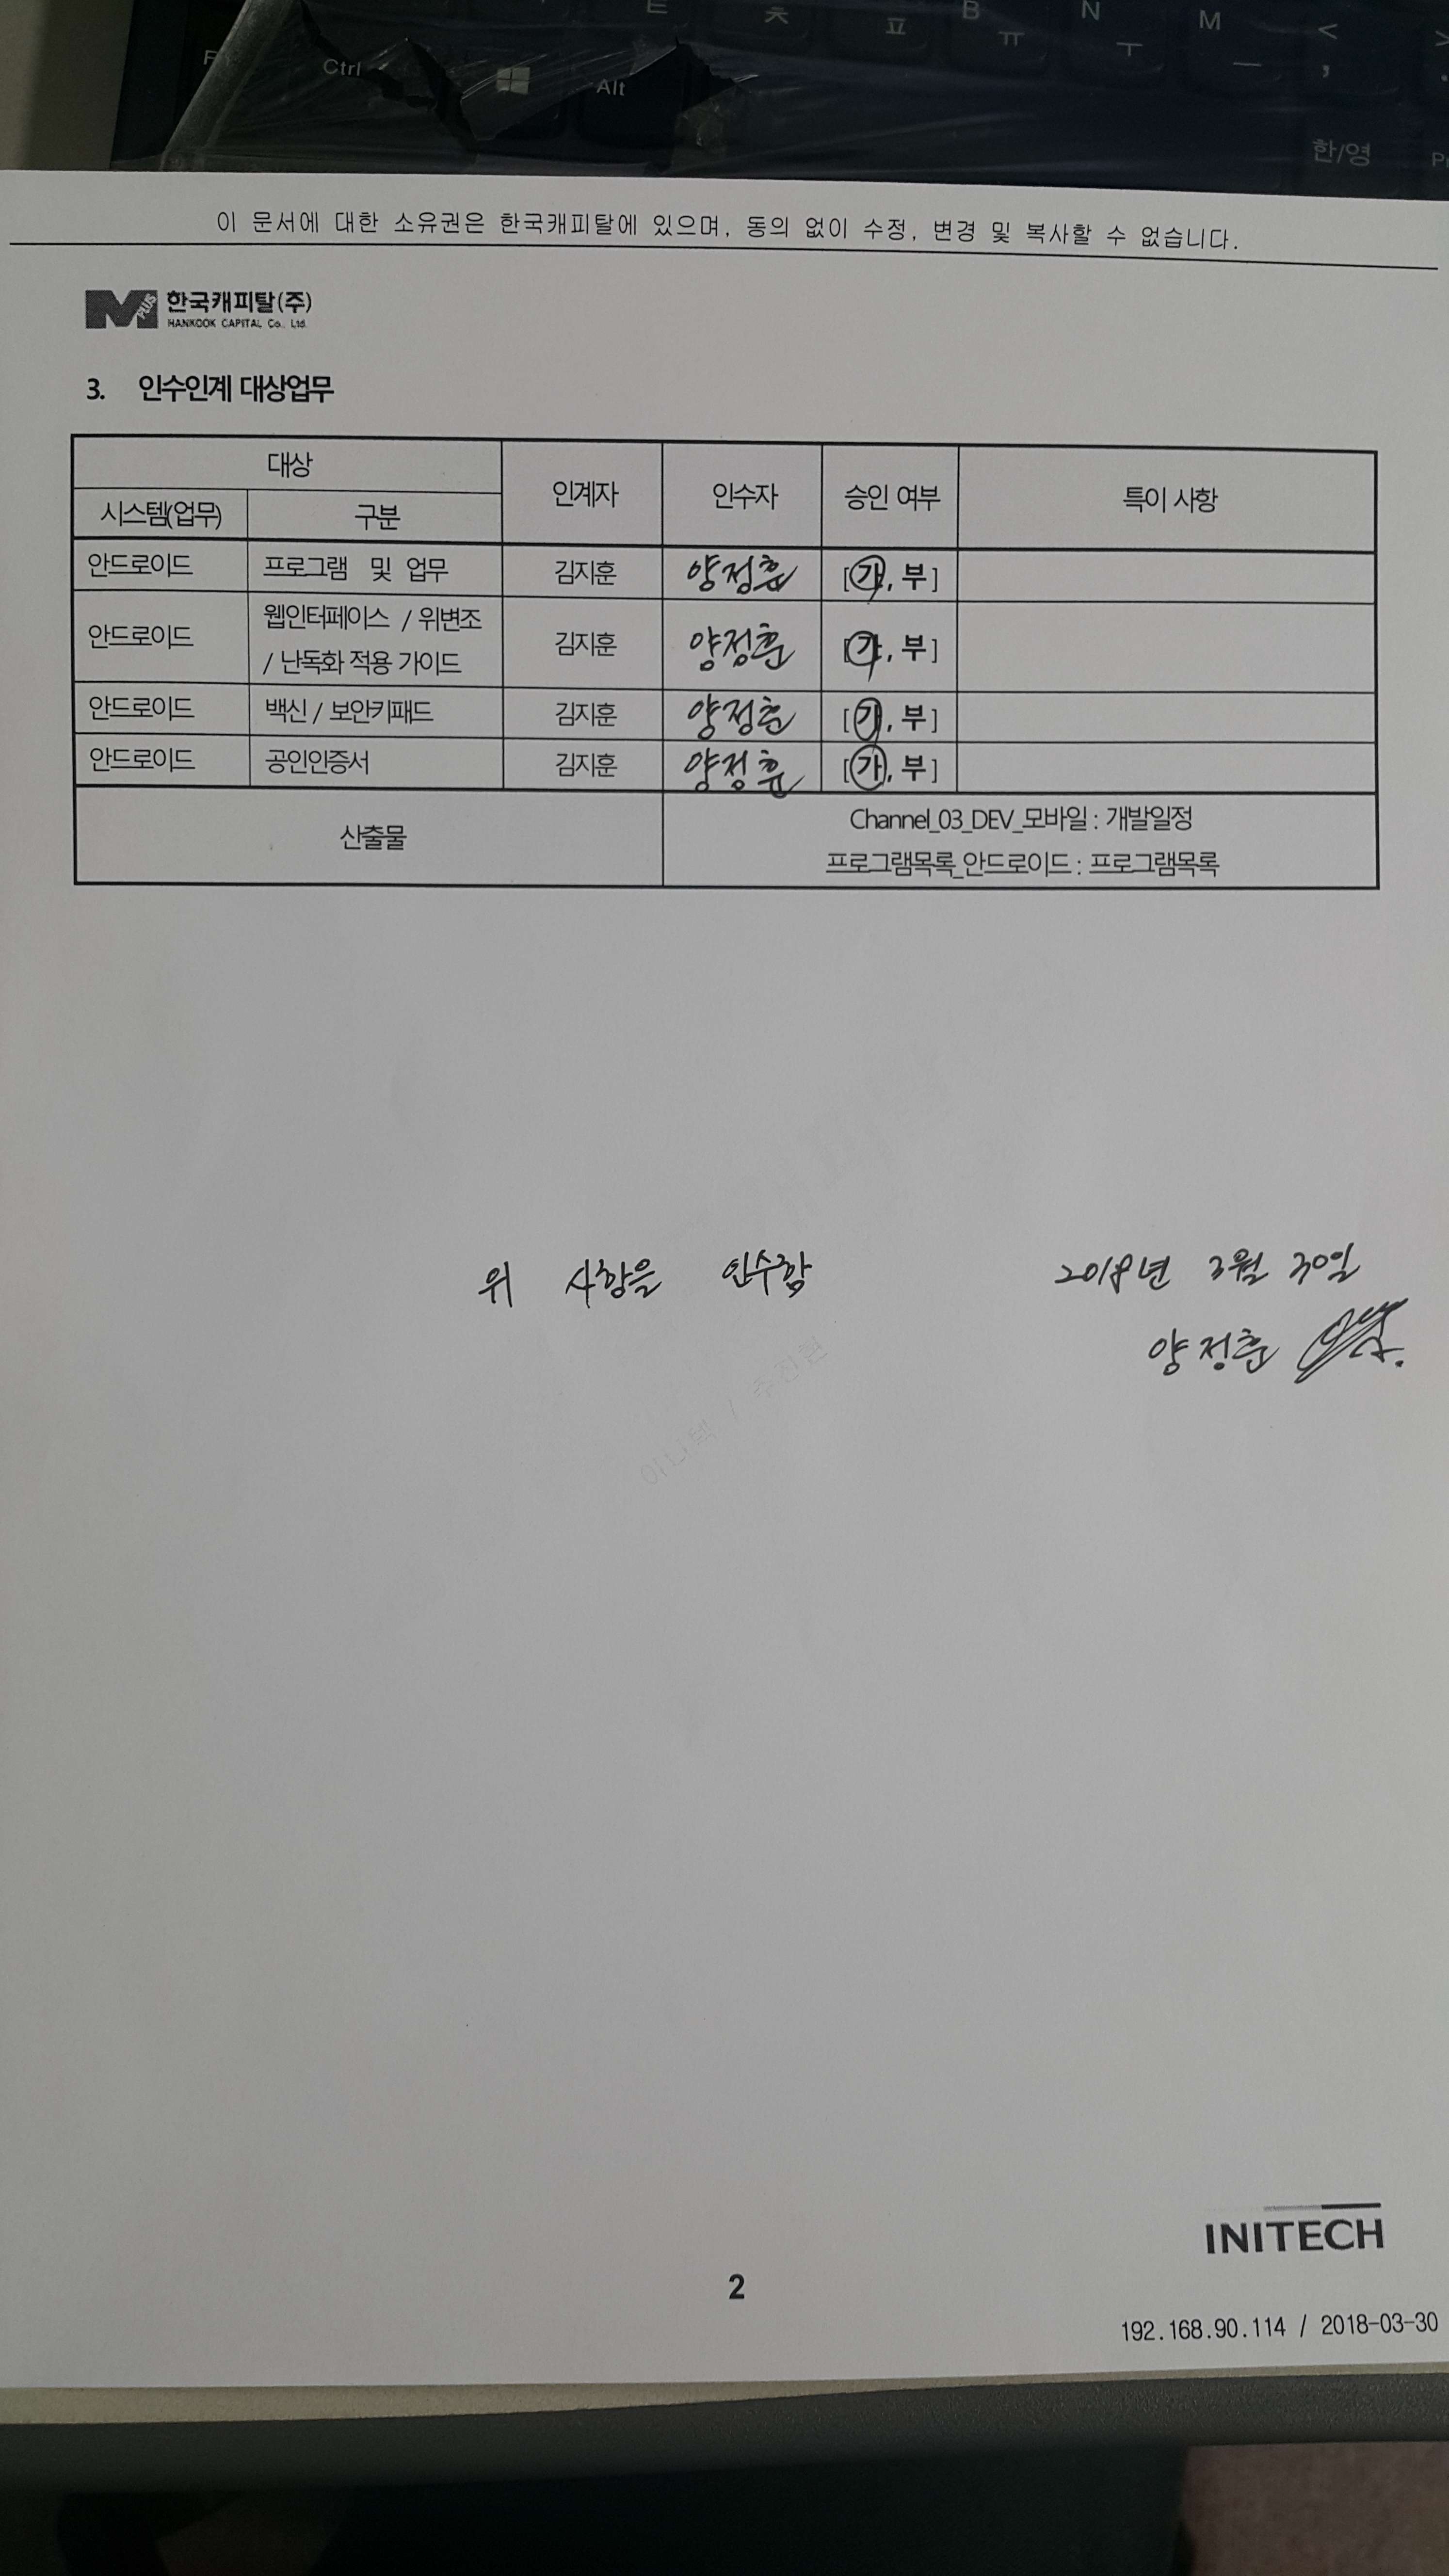 ㅌ ㅊ ㅍ B ㅠ N ㅜ M ㅡ < ,
Ctrl Alt 한/영
이 문서에 대한 소유권은 한국캐피탈에 있으며, 동의 없이 수정, 변경 및 복사할 수 없습니다.
M PLUS 한국캐피탈(주)
HANKOOK CAPITAL Co., Ltd.
3. 인수인계 대상업무
대상 인계자 인수자 승인 여부 특이 사항
시스템(업무) 구분
안드로이드 프로그램 및 업무 김지훈 양정훈 [가, 부]
안드로이드 웹인터페이스 / 위변조
/ 난독화 적용 가이드 김지훈 양정훈 [가, 부]
안드로이드 백신 / 보안키패드 김지훈 양정훈 [가, 부]
안드로이드 공인인증서 김지훈 양정훈 [가, 부]
산출물 Channel_03_DEV_모바일 : 개발일정
프로그램목록_안드로이드 : 프로그램목록
위 사항을 인수함 2018년 3월 30일
양정훈
이니텍 / 추진현
INITECH
2
192.168.90.114 / 2018-03-30